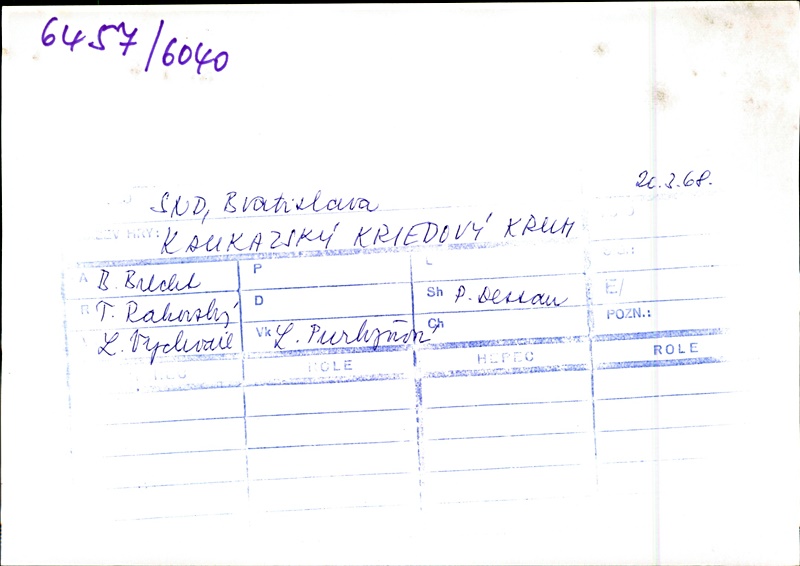 6457/6040
20.3.68.
SND, Bratislava
KAUKAZSKÝ KRIEDOVÝ KRUH
A B. Brecht P
R T. Rakovský D Sh P. Dessau E/
L. Vychodil Vk L. Purkyňová Ch POZN.:
ROLE HEREC ROLE